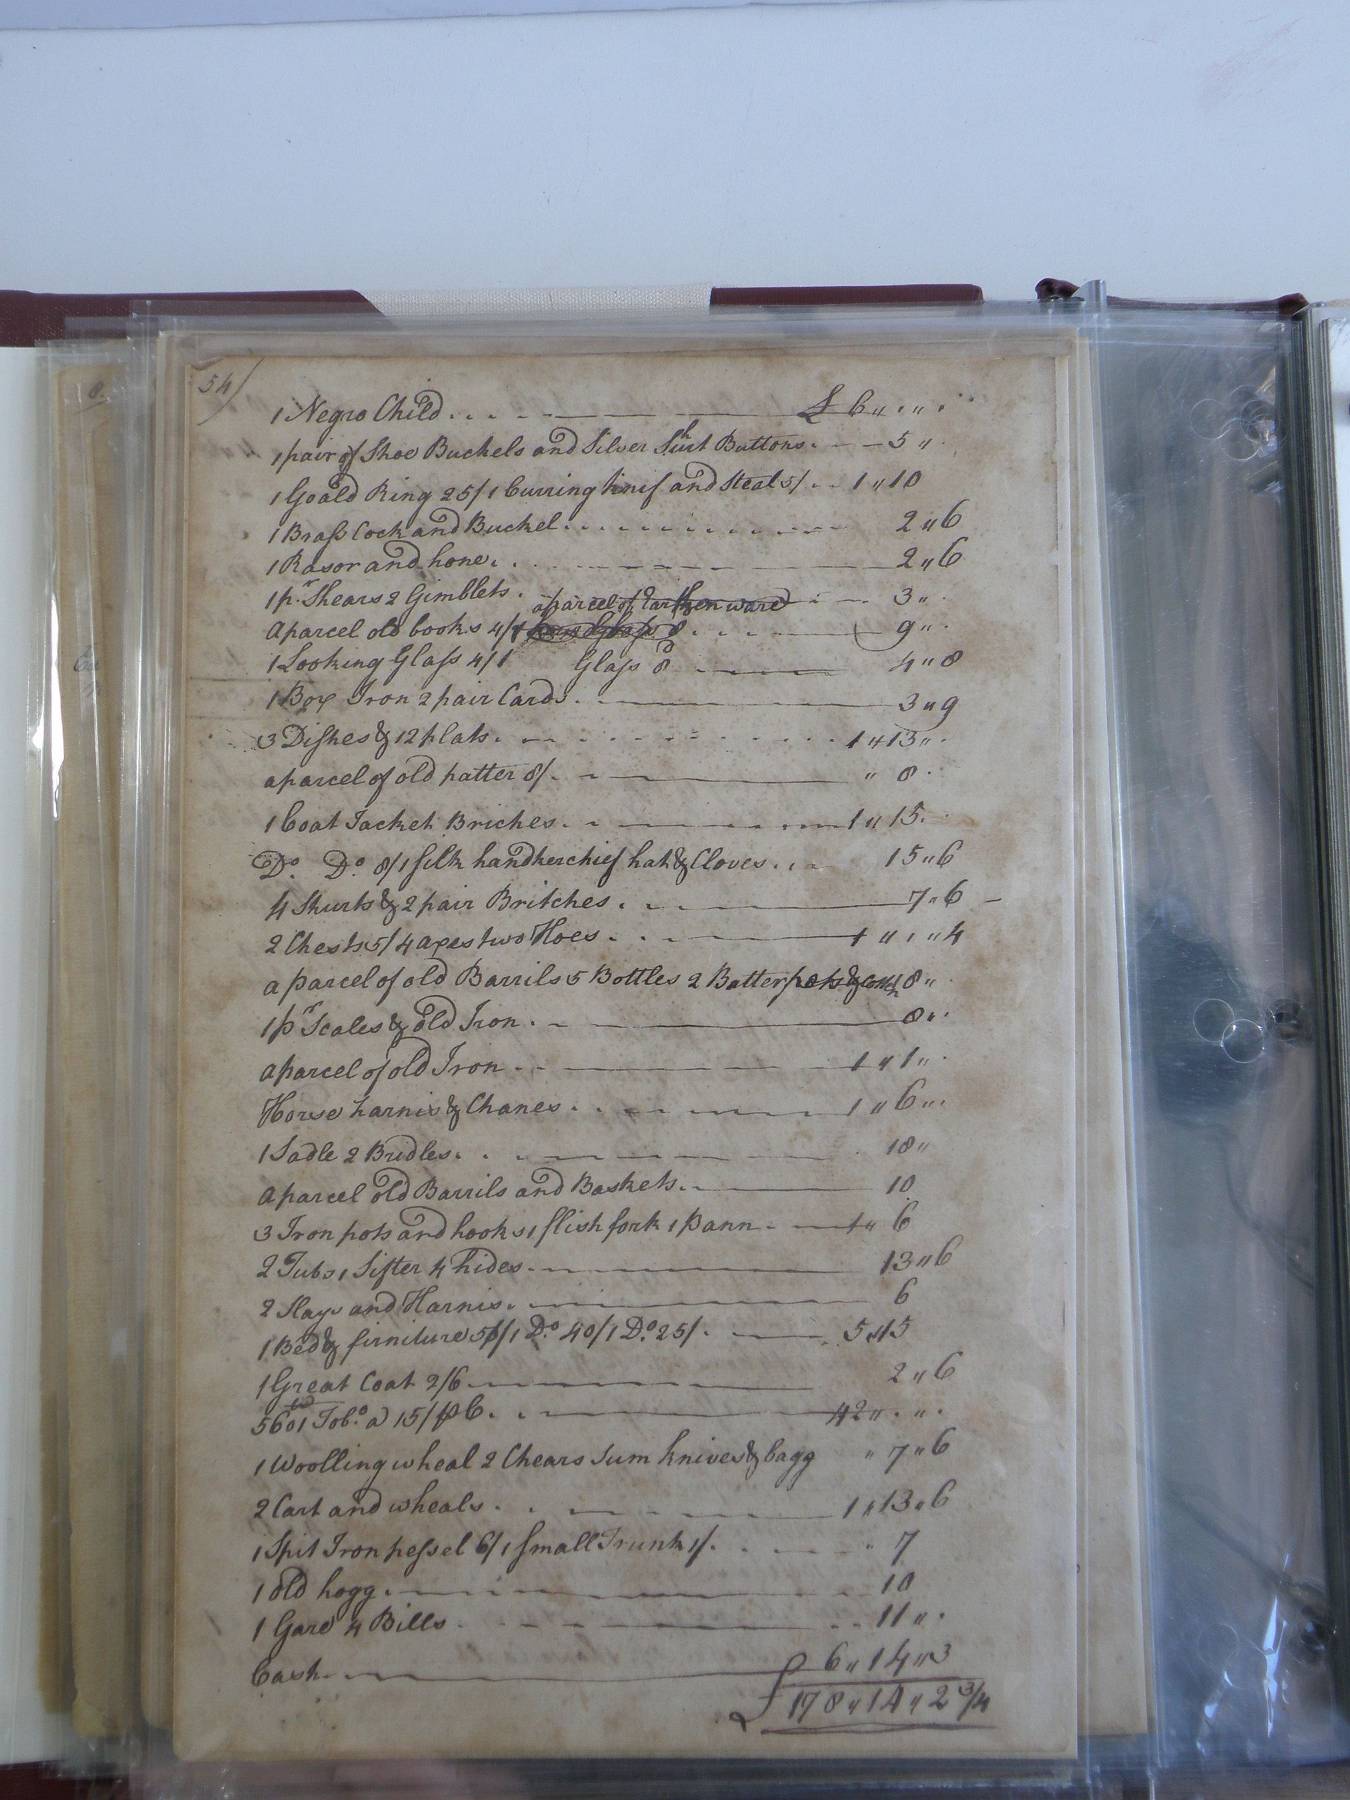 54)
1 Negro Child . . . £ 6 " . " .
1 pair of Shoe Buckels and Silver Shirt Buttons . 5 " .
1 Goald Ring 25/ 1 Curring knif and Steal 5/ . . 1 " 10
1 Brass Cock and Buckel . . . 2 " 6
1 Rasor and hone . . 2 " 6
1 pr. Shears 2 Gimblets . 3 " .
a parcel of Earthen ware
a parcel old books 4/ 9 " .
1 Looking Glass 4/ 1 Glass 8d 4 " 8
1 Box Iron 2 pair Cards . 3 " 9
3 Dishes & 12 plats . 1 " 13 " .
a parcel of old patter 8/ . " 8 .
1 Coat Jacket Briches . 1 " 15 .
Do. Do. 8/ 1 silk handkerchief hat & Cloves . . . 15 " 6
4 Shurts & 2 pair Britches . . 7 " 6
2 Chests 5/ 4 axes two Hoes . . 1 " . " 4
a parcel of old Barrils 5 Bottles 2 Butter pots & 8 " .
1 pr Scales & old Iron . 8 " .
a parcel of old Iron . . 1 " 1 " .
Horse harnis & Chanes . . 1 " 6 " .
1 Sadle 2 Bridles . . 18 "
a parcel old Barrils and Baskets . 10
3 Iron pots and hooks 1 flish fork 1 pann . 1 " 6
2 Tubs 1 Sifter 4 hides . 13 " 6
2 Slays and Harnis . 6
1 Bed & firniture 50/ 1 Do. 40/ 1 Do. 25/ . 5 " 15
1 Great Coat 2/6 2 " 6
5601 Tobo. a 15/ p C . 42 " . " .
1 Woolling wheal 2 Chears Sum knives & bagg " 7 " 6
2 Cart and wheals . . 1 " 13 " 6
1 Spit Iron pessel 6/ 1 small Trunk 1/ . " 7
1 old hogg . 10
1 Gard 4 Bills . 11 " .
Cash 6 " 14 " 3
£ 178 " 14 " 2 3/4